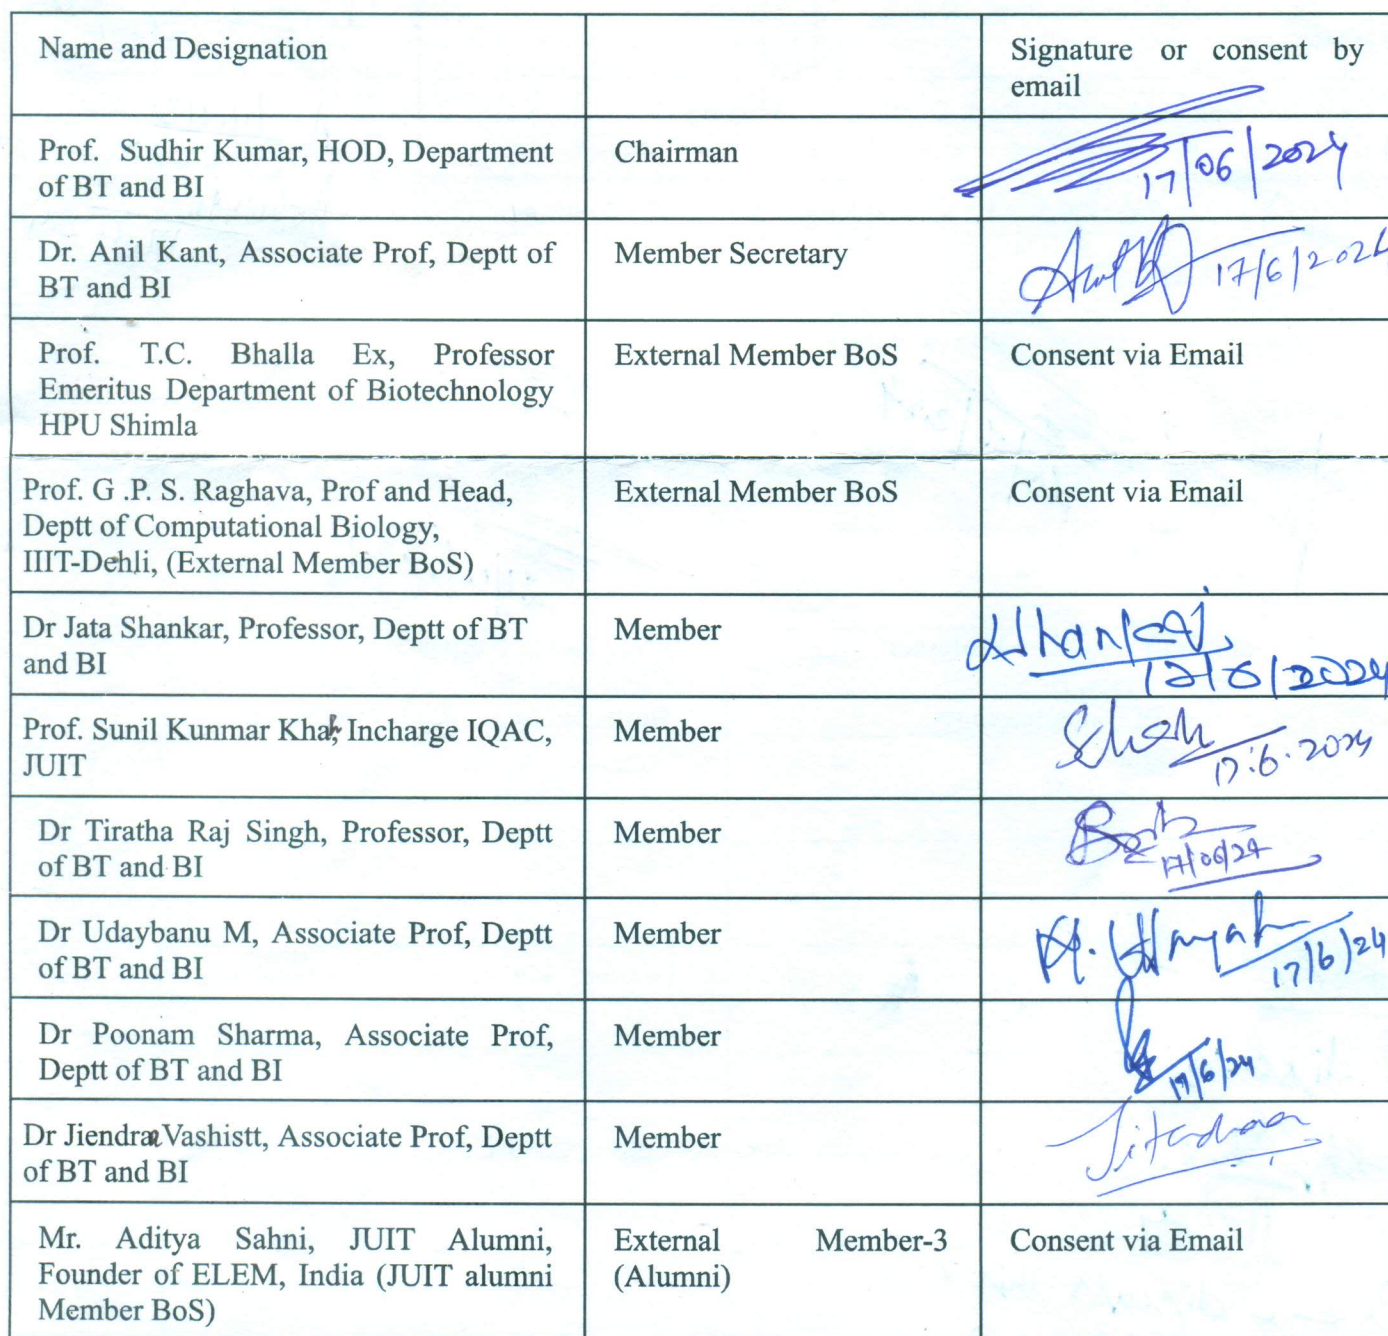 Name and Designation
Signature or consent by
email
Prof. Sudhir Kumar, HOD, Department
of BT and BI
Chairman
17/06/2024
Dr. Anil Kant, Associate Prof, Deptt of
BT and BI
Member Secretary
17/6/2024
Prof. T.C. Bhalla Ex, Professor
Emeritus Department of Biotechnology
HPU Shimla
External Member BoS
Consent via Email
Prof. G .P. S. Raghava, Prof and Head,
Deptt of Computational Biology,
IIIT-Dehli, (External Member BoS)
External Member BoS
Consent via Email
Dr Jata Shankar, Professor, Deptt of BT
and BI
Member
Prof. Sunil Kunmar Khah, Incharge IQAC,
JUIT
Member
17.6.2024
Dr Tiratha Raj Singh, Professor, Deptt
of BT and BI
Member
17/06/24
Dr Udaybanu M, Associate Prof, Deptt
of BT and BI
Member
17/6/24
Dr Poonam Sharma, Associate Prof,
Deptt of BT and BI
Member
17/6/24
Dr Jiendra Vashistt, Associate Prof, Deptt
of BT and BI
Member
Jitendraa
Mr. Aditya Sahni, JUIT Alumni,
Founder of ELEM, India (JUIT alumni
Member BoS)
External Member-3
(Alumni)
Consent via Email